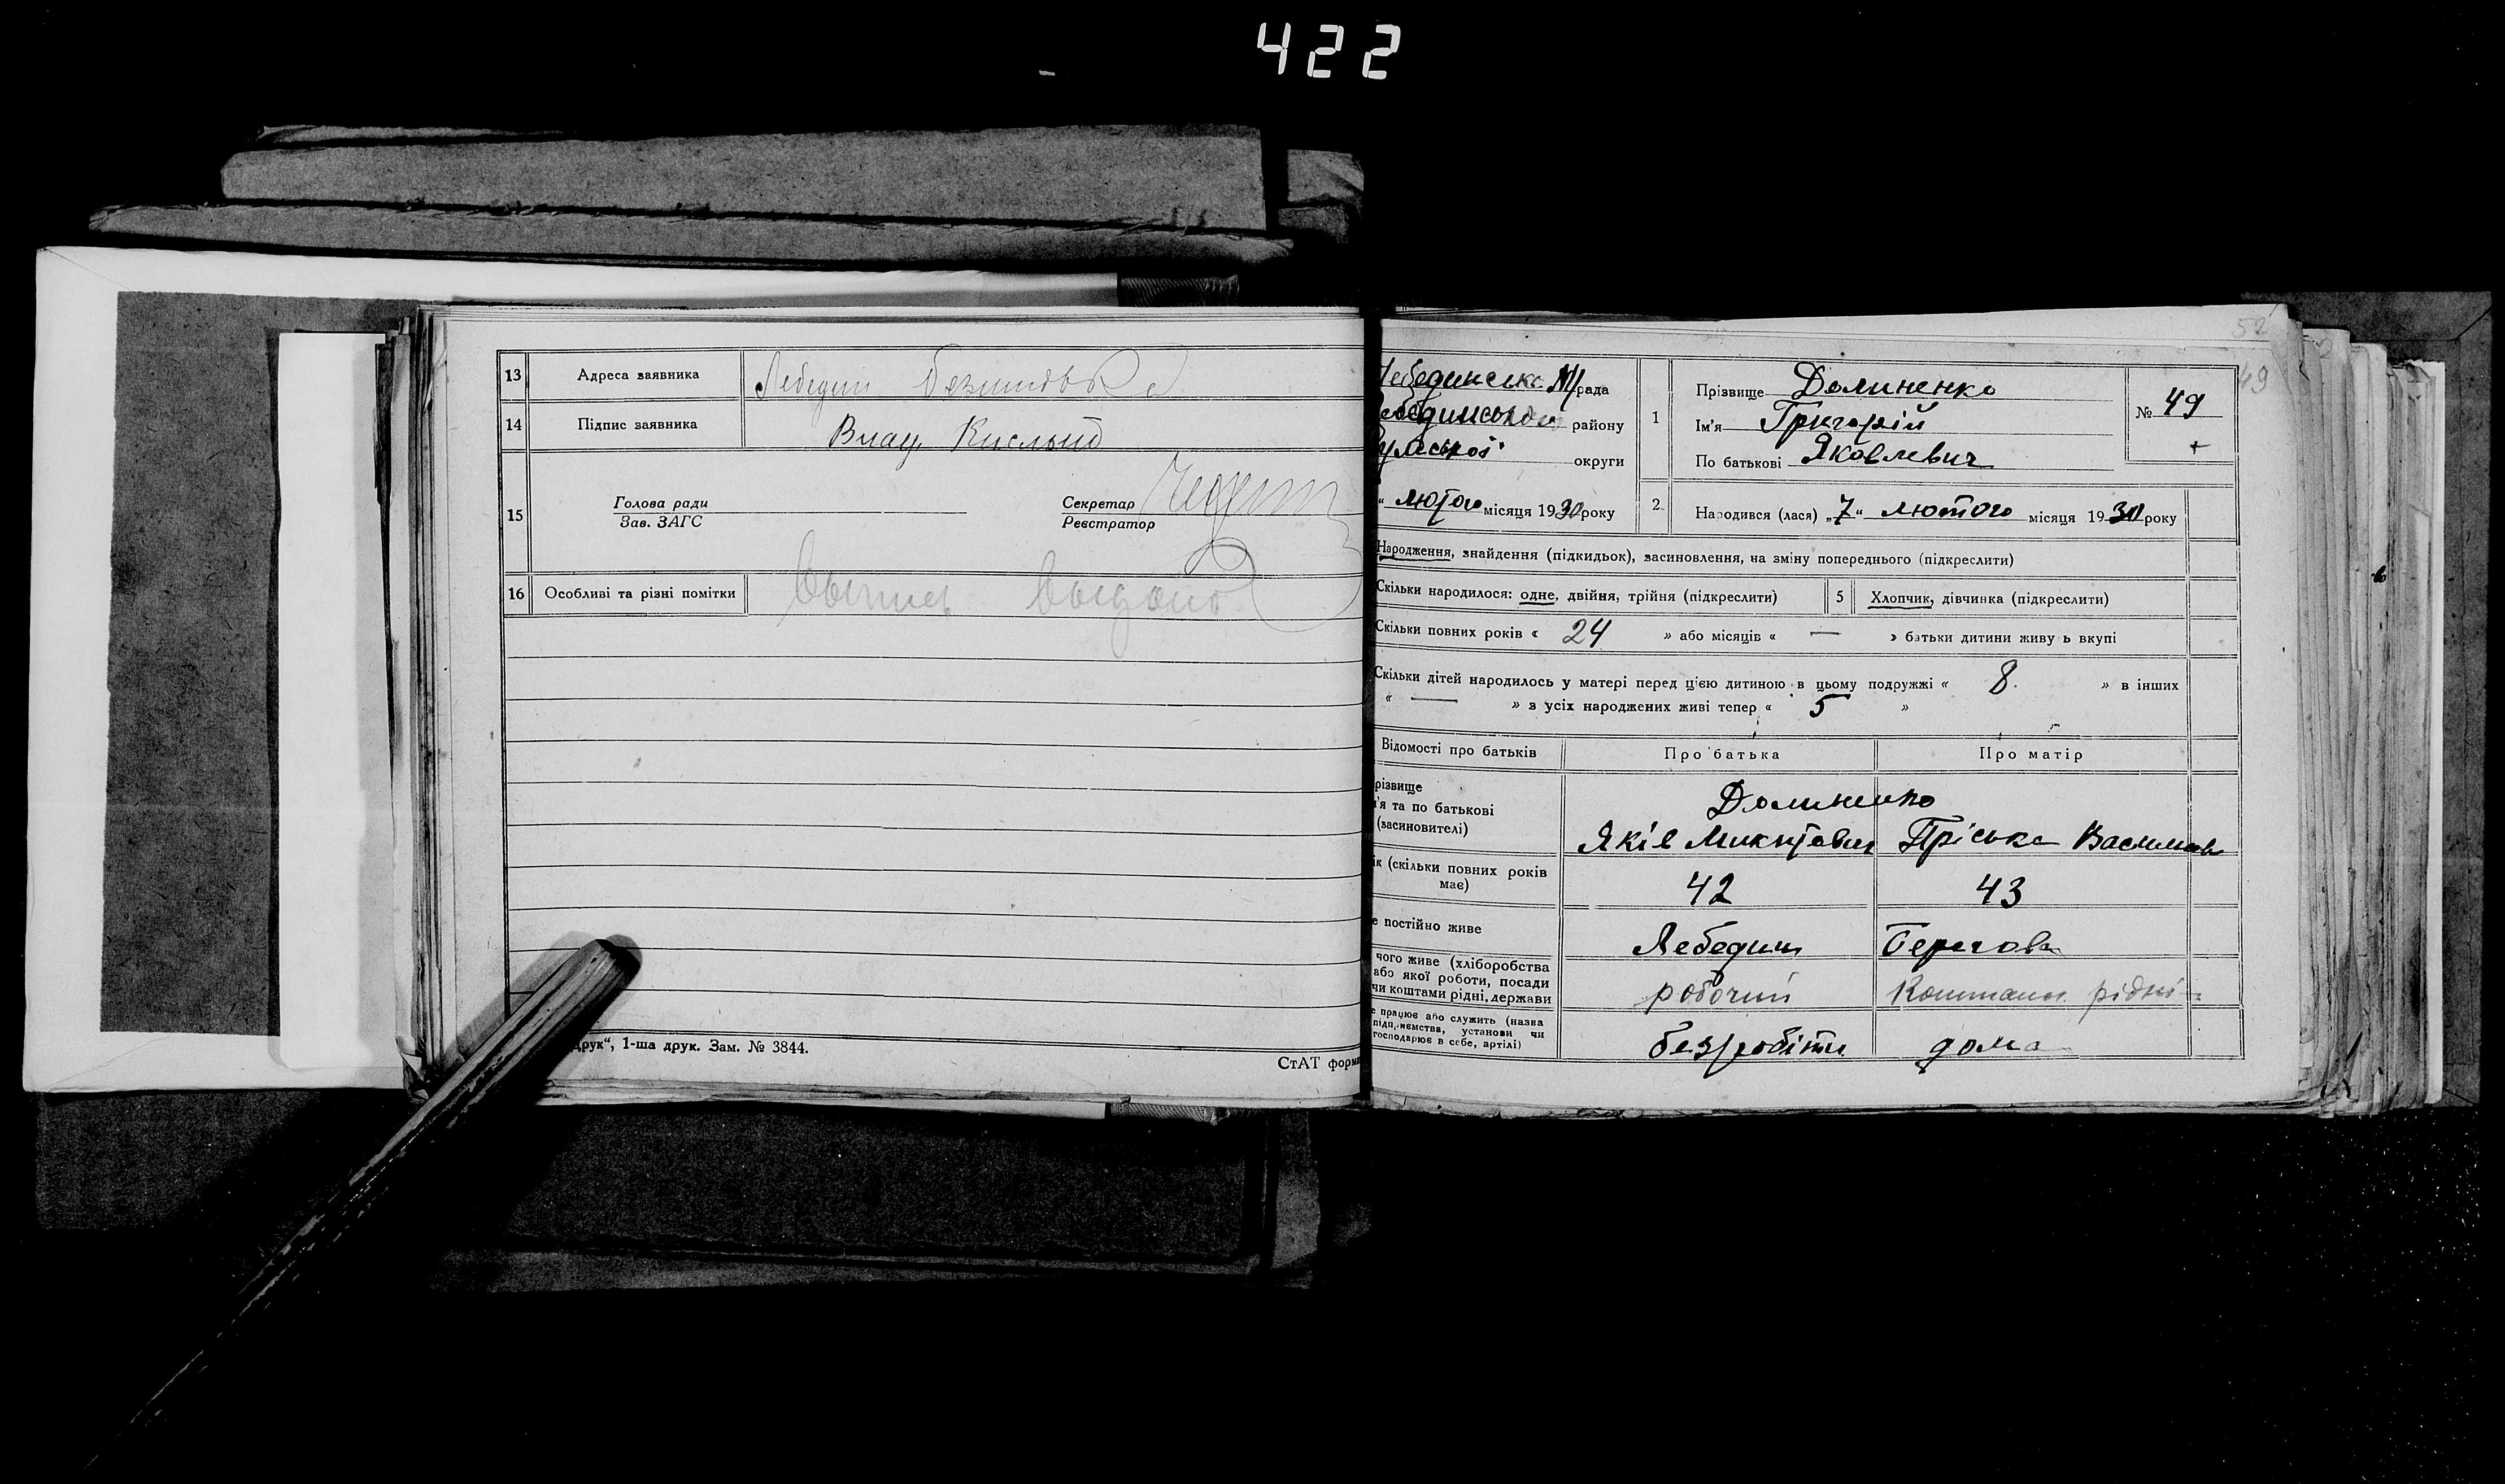 422
13 Адреса заявника Лебедин
14 Підпис заявника Кислый
15 Голова ради Зав. ЗАГС Секретар Реєстратор
16 Особливі та різні помітки
друк“, 1-ша друк. Зам. № 3844.
СтАТ форм
52
49
Лебединська рада
Лебединського району
округи
“ лютого місяця 1930 року
1 Прізвище Долиненко
Ім'я Григорій
По батькові Яковлевич
№ 49
+
2 Народився (лася) „7“ лютого місяця 1930 року
Народження, знайдення (підкидьок), засиновлення, на зміну попереднього (підкреслити)
Скільки народилося: одне, двійня, трійня (підкреслити) 5 Хлопчик, дівчинка (підкреслити)
Скільки повних років « 24 » або місяців « — » батьки дитини живу ь вкупі
Скільки дітей народилось у матері перед цією дитиною в цьому подружжі « 8 » в інших
« — » з усіх народжених живі тепер « 5 »
Відомості про батьків Про батька Про матір
різвище
'я та по батькові
(засиновителі)
Долиненко
Яків Микитович Пріська Василівн
ік (скільки повних років має) 42 43
е постійно живе Лебедин Берегова
чого живе (хліборобства
або якої роботи, посади
чи коштами рідні, держави
робочий Коштами рідні
е працює або служить (назва
підприємства, установи чи
господарює в себе, артілі)
безробітн дома